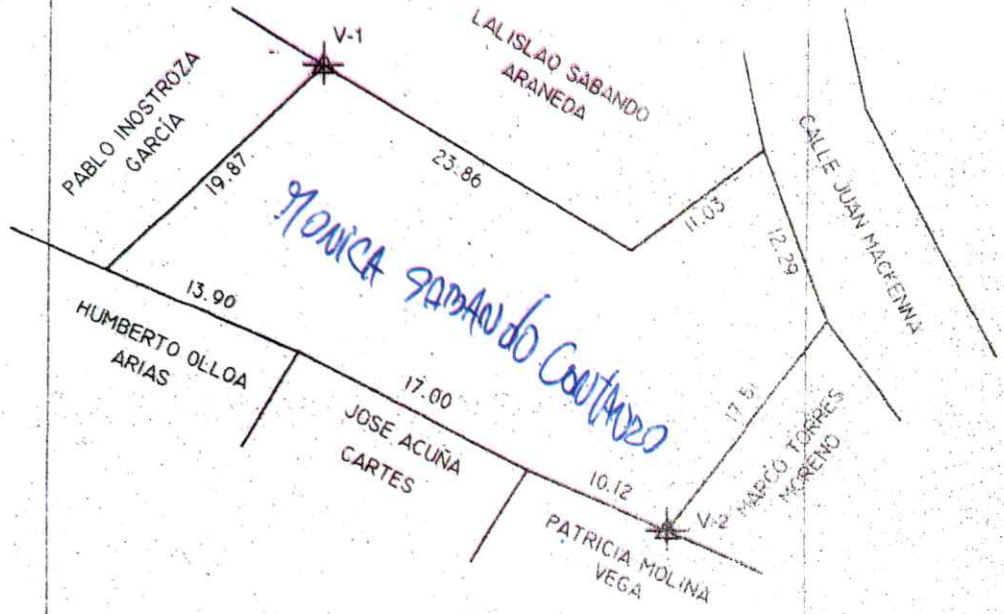 V-1
LALISLAO SABANDO
ARANEDA
PABLO INOSTROZA
GARCÍA
19.87
23.86
11.03
CALLE JUAN MACKENNA
12.29
MONICA SABANDO
13.90
HUMBERTO OLLOA
ARIAS
17.00
JOSE ACUÑA
CARTES
17.51
MARCO TORRES
MORENO
10.12
V-2
PATRICIA MOLINA
VEGA